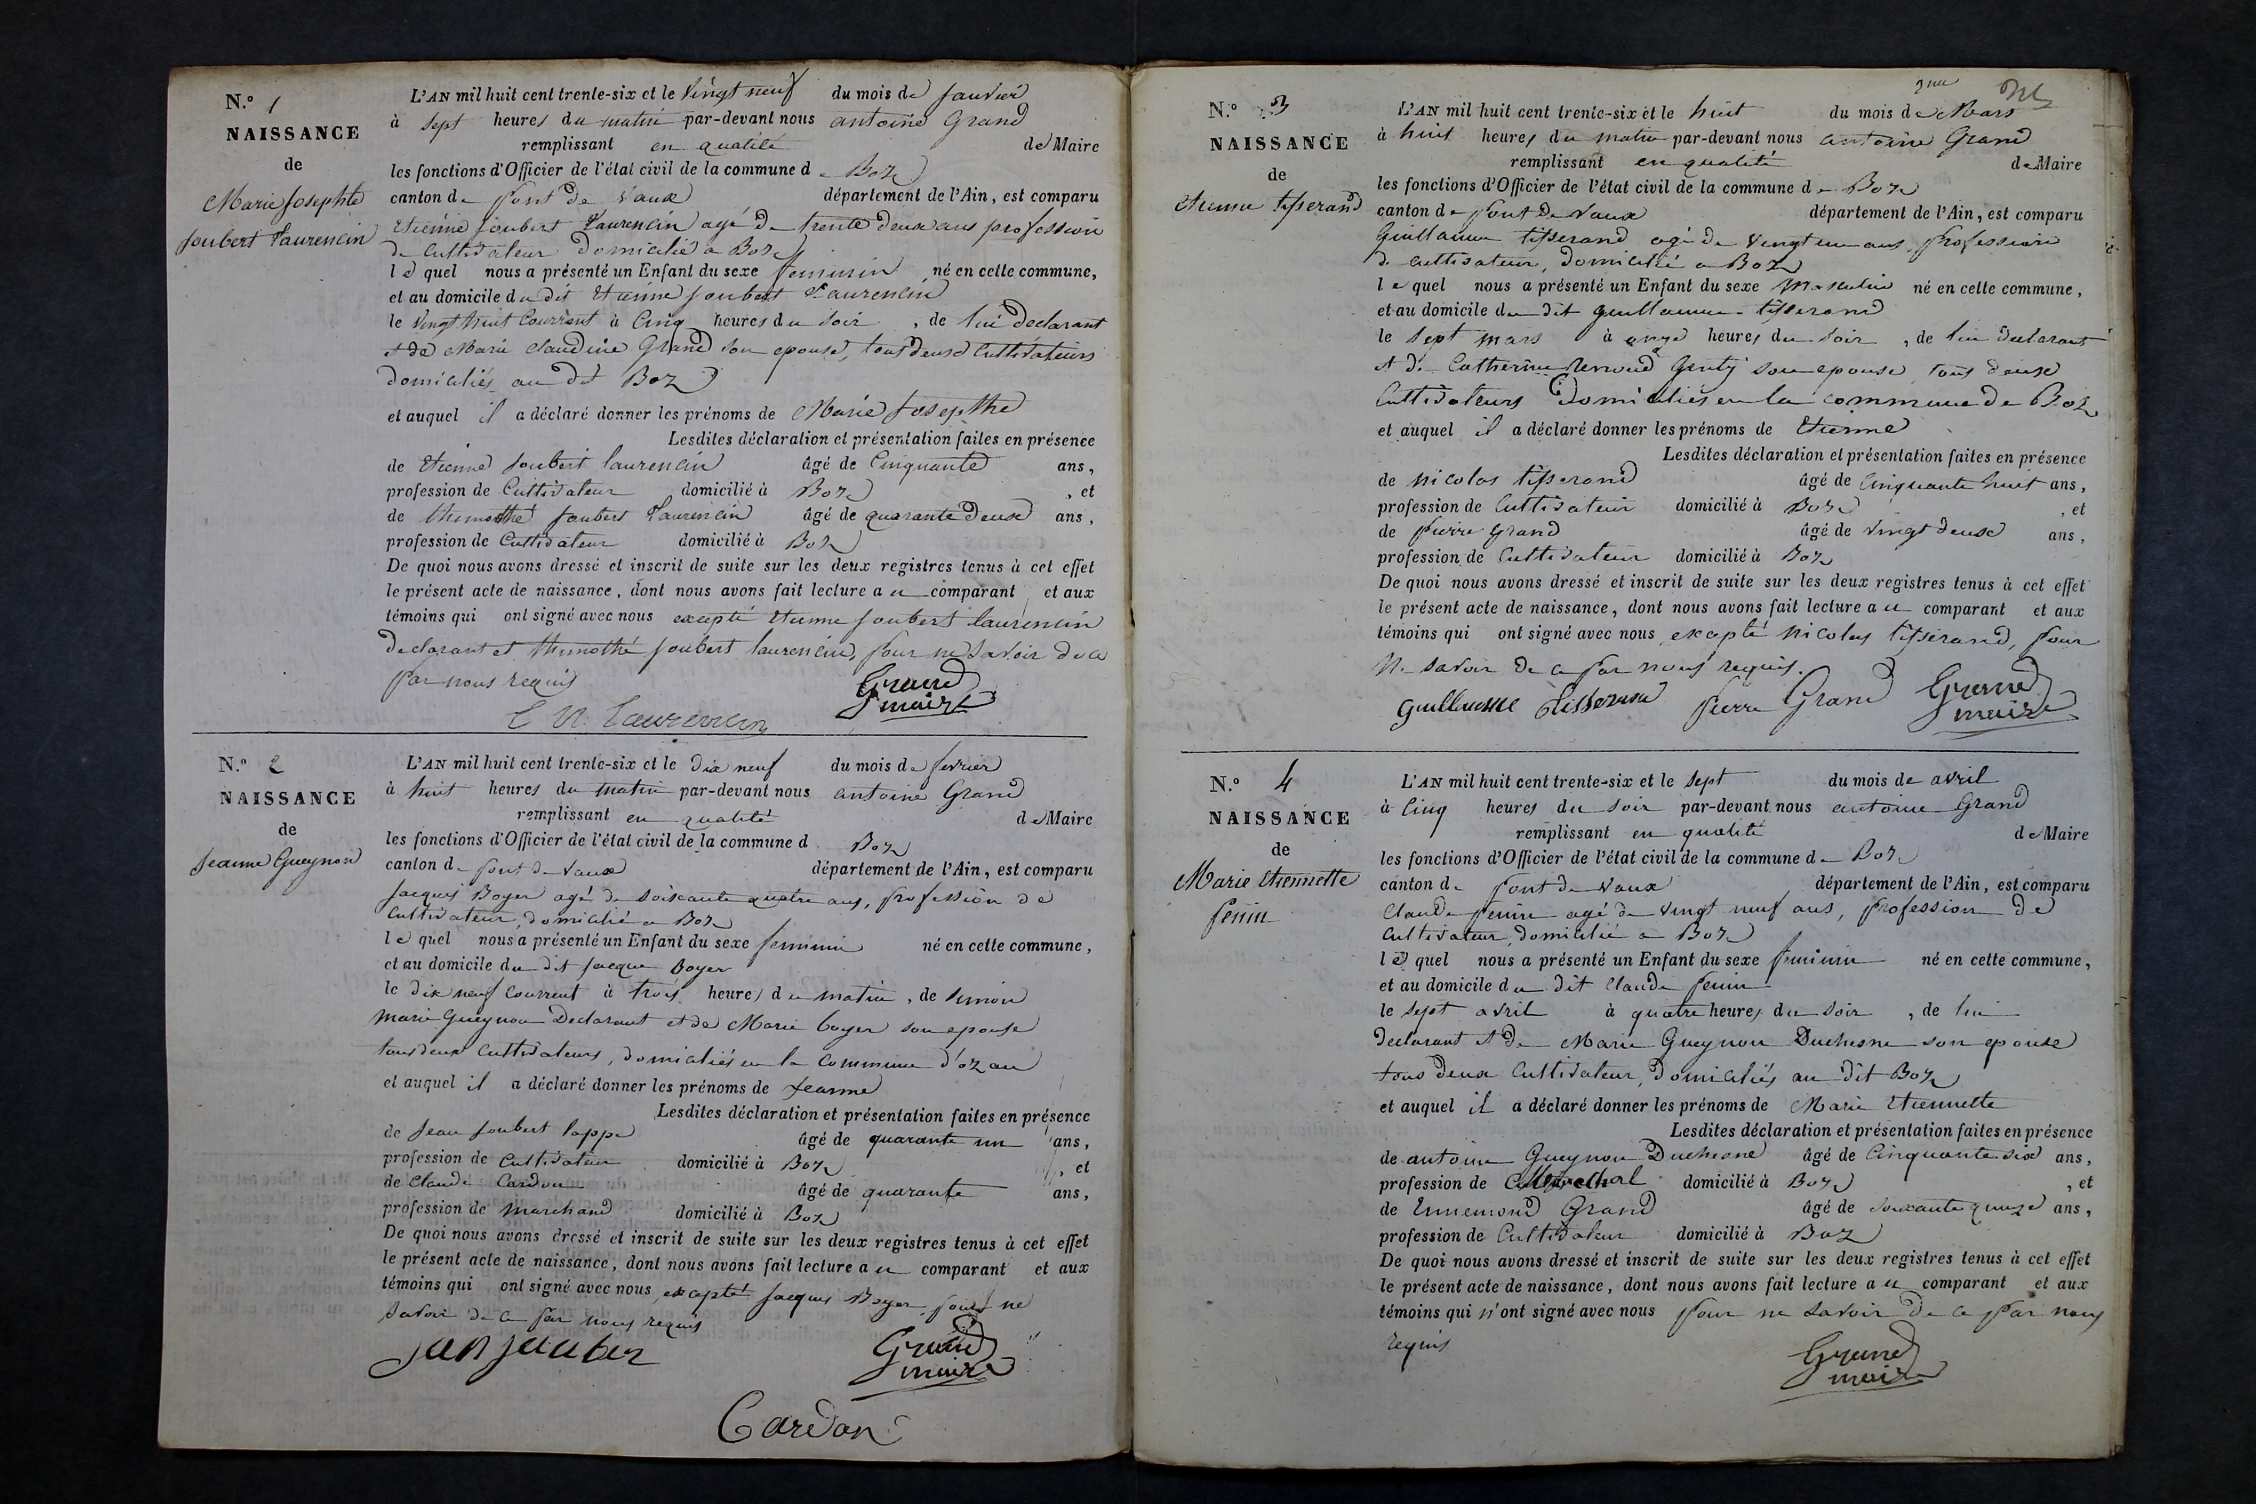 N.° 1
NAISSANCE
de
Marie Josephte
Joubert Laurencin
L'AN mil huit cent trente-six et le vingt neuf du mois de janvier
à sept heures du matin par-devant nous antoine Grand
remplissant en qualité de Maire
les fonctions d'Officier de l'état civil de la commune de Boz
canton de Pont de Vaux département de l'Ain, est comparu
Etienne Joubert Laurencin agé de trente deux ans profession
de Cultivateur domicilié a Boz
le quel nous a présenté un Enfant du sexe feminin né en cette commune,
et au domicile du dit Etienne Joubert Laurencin
le vingt huit Courrent à Cinq heures du soir, de lui declarant
et de Marie Claudine Grand son epouse, tous deux Cultivateurs
domiciliés au dit Boz
et auquel il a déclaré donner les prénoms de Marie Josepthe
Lesdites déclaration et présentation faites en présence
de Etienne Joubert laurencin âgé de Cinquante ans,
profession de Cultivateur domicilié à Boz, et
de thimothé Joubert Laurencin âgé de quarante Deux ans,
profession de Cultivateur domicilié à Boz
De quoi nous avons dressé et inscrit de suite sur les deux registres tenus à cet effet
le présent acte de naissance, dont nous avons fait lecture au comparant et aux
témoins qui ont signé avec nous excepté Etienne Joubert laurencin
declarant et thimothé Joubert laurencin, pour ne savoir de ce
par nous requis
Grand
maire
E N Laurencin
N.° 2
NAISSANCE
de
Jeanne Gueynon
L'AN mil huit cent trente-six et le dix neuf du mois de fevrier
à huit heures du matin par-devant nous antoine Grand
remplissant en qualité de Maire
les fonctions d'Officier de l'état civil de la commune d Boz
canton de Pont de Vaux département de l'Ain, est comparu
Jacques Boyer agé de soixante quatre ans, profession de
Cultivateur, domicilié a Boz
le quel nous a présenté un Enfant du sexe feminin né en cette commune,
et au domicile du dit Jacque Boyer
le dix neuf Courrent à trois heures du matin, de simon
marie Gueynon Declarant et de Marie boyer son epouse
tous deux Cultivateurs, domiciliés en la Commune d'ozan
et auquel il a déclaré donner les prénoms de Jeanne
Lesdites déclaration et présentation faites en présence
de Jean Joubert lappe âgé de quarante un ans,
profession de Cultivateur domicilié à Boz, et
de Claude Cardon âgé de quarante ans,
profession de Marchand domicilié à Boz
De quoi nous avons dressé et inscrit de suite sur les deux registres tenus à cet effet
le présent acte de naissance, dont nous avons fait lecture au comparant et aux
témoins qui ont signé avec nous excepté Jacques Boyer, pour ne
savoir de ce par nous requis
Grand
maire
Cardon
N.° 3
NAISSANCE
de
Etienne tisserand
L'AN mil huit cent trente-six et le huit du mois de Mars
à huit heures du matin par-devant nous antoine Grand
remplissant en qualité de Maire
les fonctions d'Officier de l'état civil de la commune de Boz
canton de Pont de Vaux département de l'Ain, est comparu
Guillaume tisserand agé de vingt un ans, profession
de cultivateur, domicilié a Boz
le quel nous a présenté un Enfant du sexe masculin né en cette commune,
et au domicile du dit guillaume tisserand
le sept mars à onze heures du soir, de lui declarant
et de Catherine Renoud Genty son epouse, tous deux
Cultivateurs Domiciliés en la commune de Boz
et auquel il a déclaré donner les prénoms de Etienne
Lesdites déclaration et présentation faites en présence
de nicolas tisserand âgé de Cinquante huit ans,
profession de Cultivateur domicilié à Boz, et
de Pierre Grand âgé de vingt deux ans,
profession de Cultivateur domicilié à Boz
De quoi nous avons dressé et inscrit de suite sur les deux registres tenus à cet effet
le présent acte de naissance, dont nous avons fait lecture au comparant et aux
témoins qui ont signé avec nous excepté nicolas tisserand, pour
ne savoir de ce par nous requis.
guillaume tisserand Pierre Grand Grand
maire
N.° 4
NAISSANCE
de
Marie Etiennette
Penin
L'AN mil huit cent trente-six et le sept du mois de avril
à Cinq heures du soir par-devant nous antoine Grand
remplissant en qualité de Maire
les fonctions d'Officier de l'état civil de la commune de Boz
canton de Pont de Vaux département de l'Ain, est comparu
Claude Penin agé de vingt neuf ans, profession de
cultivateur, domicilié a Boz
le quel nous a présenté un Enfant du sexe feminin né en cette commune,
et au domicile du dit Claude Penin
le sept avril à quatre heures du soir, de lui
declarant et de Marie Gueynon Duchesne son epouse
tous deux Cultivateur, domiciliés au dit Boz
et auquel il a déclaré donner les prénoms de Marie Etiennette
Lesdites déclaration et présentation faites en présence
de antoine Gueynon Duchesne âgé de Cinquante six ans,
profession de domicilié à Boz, et
de Ennemond Grand âgé de soixante quinze ans,
profession de Cultivateur domicilié à Boz
De quoi nous avons dressé et inscrit de suite sur les deux registres tenus à cet effet
le présent acte de naissance, dont nous avons fait lecture au comparant et aux
témoins qui n'ont signé avec nous pour ne savoir de ce par nous
requis
Grand
maire